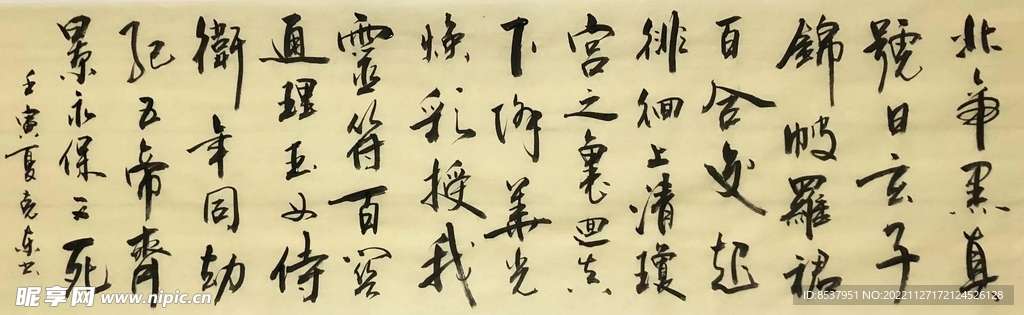 北帝黑真
號曰玄子
錦帔羅裙
百合變起
徘徊上清瓊
宮之裏迴真
下降華光
煥彩授我
靈符百關
通理玉女侍
衛年同劫
紀五帝齊
景永保不死
壬寅夏
昵享网 www.nipic.cn
ID:8537951 NO:20221127172124526128